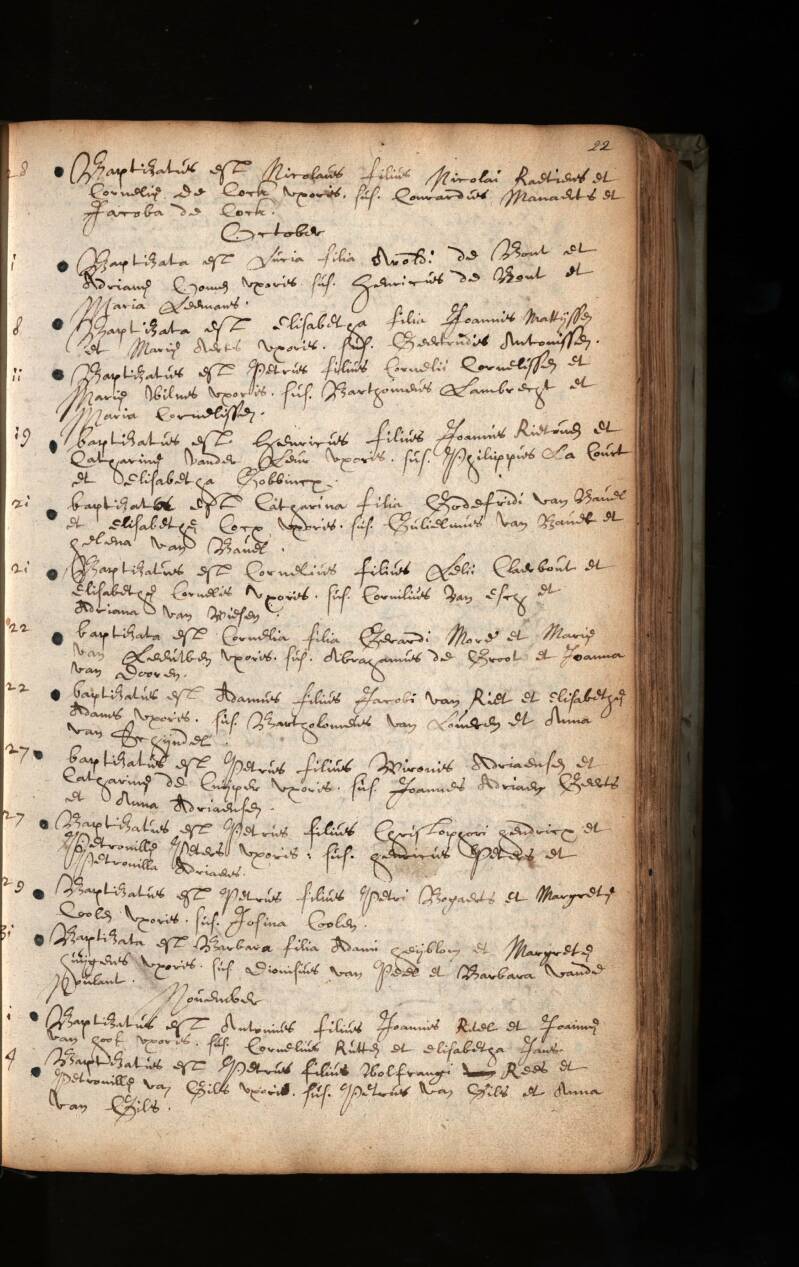 22
28 Baptizatus est Nicolaus filius Nicolai Raetiers et
Cornelię de Cock uxoris. sus. Conrardus Manaerts et
Jacoba de Cock.
October
1 Baptizata est Luria filia Arnoldi de Bout et
Adrianę uxoris sus. Henricus de Bout et
Maria Leemans.
8 Baptizata est Elisabetha filia Joannis Mattijssen
et Marię Aerts uxoris. sus. Geertrudis Antonissen.
11 Baptizatus est Petrus filius Cornelii Cornelissen et
Marię Wilms uxoris. sus. Bartholomeus Lambrecht et
Maria Cornelissen.
19 baptizatus est Henricus filius Joannis et
Catharinę vander Leur uxoris. sus. Philippus La Court
et Elisabetha Gobbincx.
21 baptizata est Catharina filia Godefridi van Bauel
et Elisabethę Cocx uxoris. sus. Gulielmus van Bauel et
Helena van Bauel.
21 Baptizatus est Cornelius filius Lelii Claerbout et
Elisabethę Cornelis uxoris. sus. Cornilius van Esch et
Adriana van
22 baptizata est Cornelia filia Gerardi More et Marię
van uxoris. sus. Abrahamus de Groot et Joanna
van Dooren.
22 baptizatus est Adamus filius Jacobi van Riet et Elisabethę
Adams uxoris. sus. Bartholomeus van et Anna
van Schijndel.
27 baptizatus est Petrus filius Wironis Adriaensen et
Catharinę de Cuyper uxoris. sus. Joannes Adriaen Geerts
et Anna Adriaensen.
27 Baptizatus est Petrus filius Christophori Hendricx et
Petronillę Peters uxoris. sus. Henricus Peters et
Petronilla Adriaens.
29 Baptizatus est Petrus filius Petri Bogaerts et Margretę
Coolen uxoris. sus. Josina Coolen.
31 Baptizata est Barbara filia Adami Heijblom et Margretę
Huijgens uxoris. sus. Dionisius van Pees et Barbara vande
November
1 Baptizatus est Antonius filius Joannis Riel et Joannę
van Hoof uxoris. sus. Cornelius Rutten et Elisabetha Jans
4 Baptizatus est Petrus filius Wolfrangi Rees et
Petronillę van Gils uxoris. sus. Petrus van Gils et Anna
van Gils.